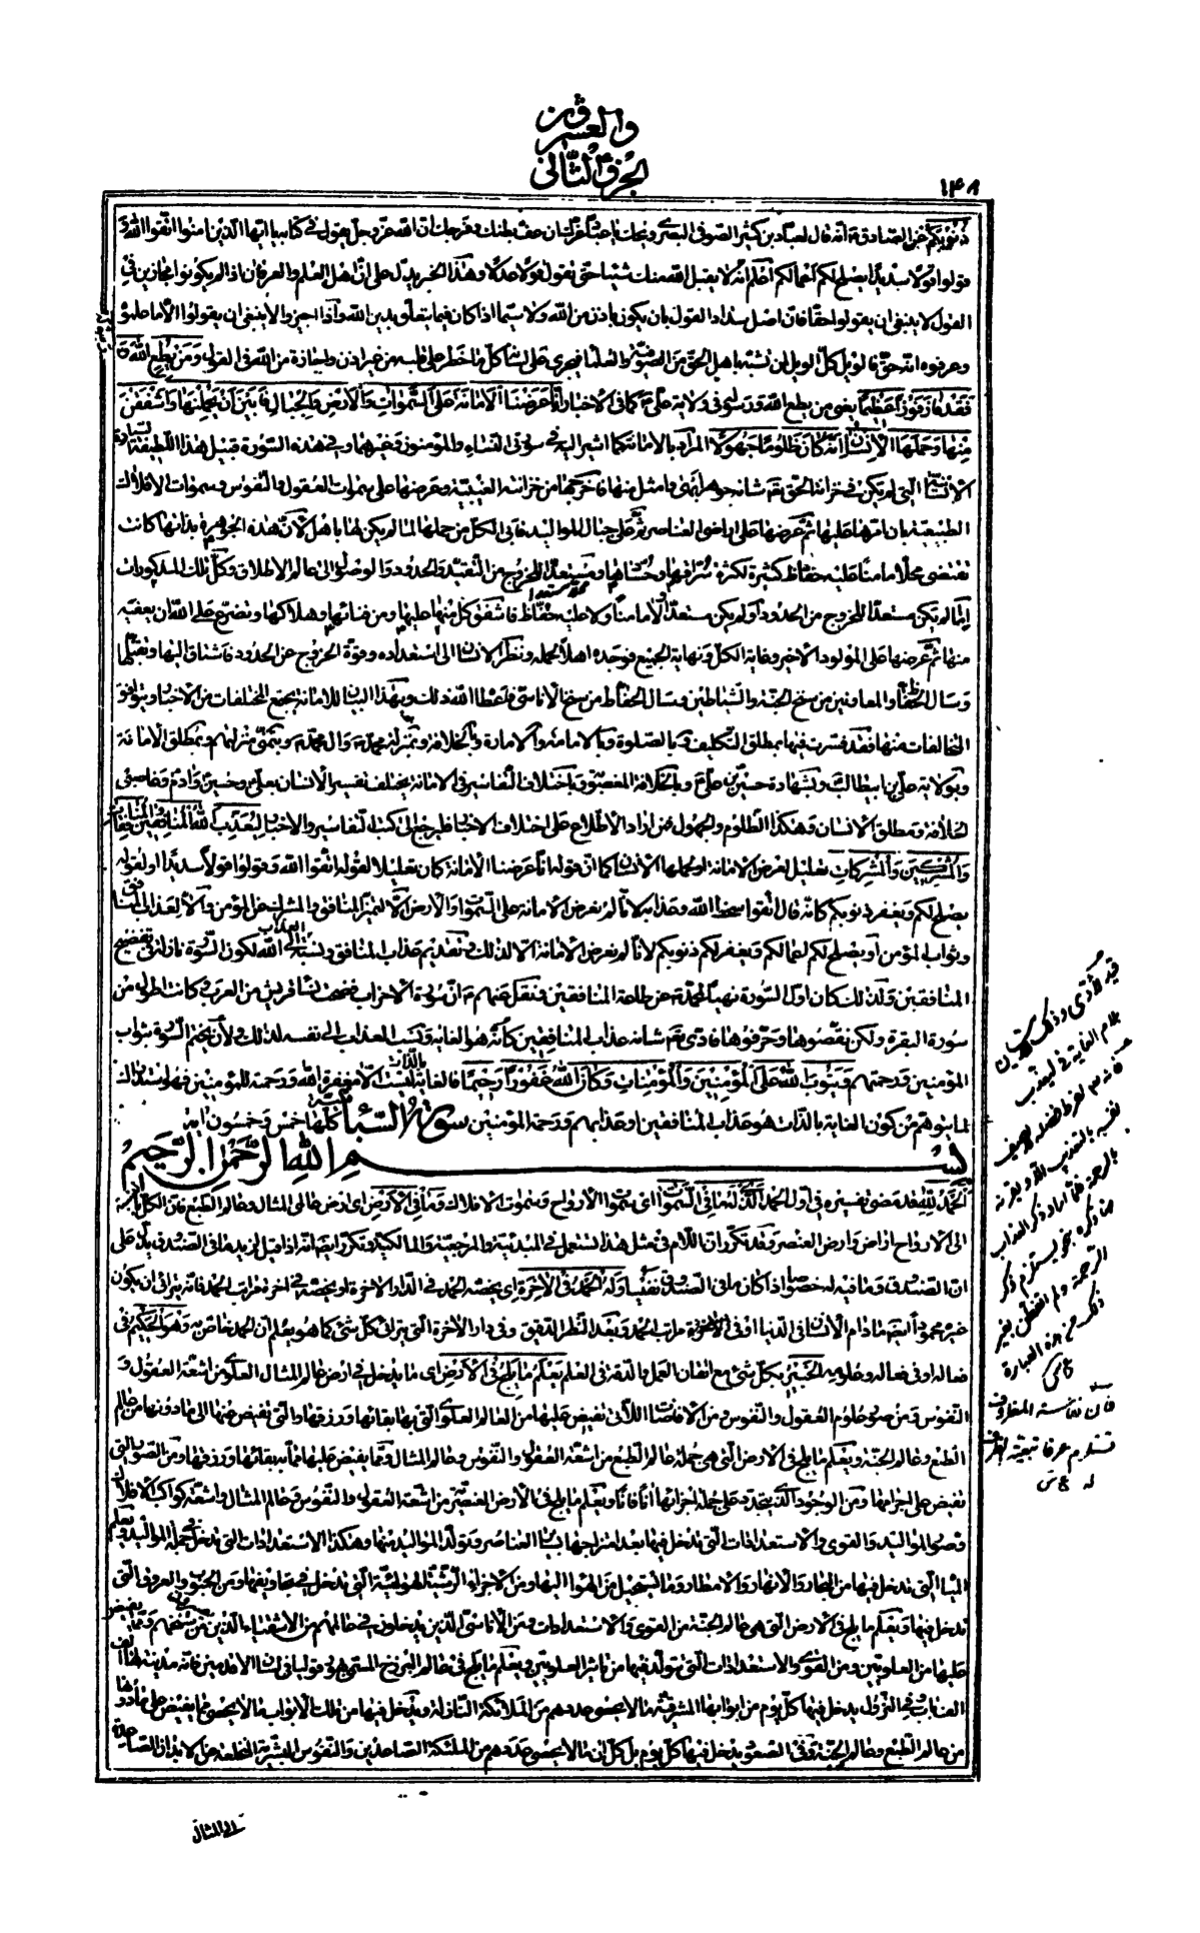 الجزء الثانى
والعشرون
١٤٨
ذنوبكم عن الصادق ع انه قال لعباد بن كثير الصوفى البصرى ويحك يا عباد غرك ان عف بطنك وفرجك ان الله عز وجل يقول فى كتابه يا ايها الذين امنوا اتقوا الله و
قولوا قولا سديدا يصلح لكم اعمالكم اعلم انه لا يقبل الله منك شيئا حتى تقول قولا عدلا وهذا الخبر يدل على ان اهل العلم والعرفان اذا لم يكونوا مجازين فى
القول لا ينبغى ان يقولوا حقا فان اصل سداد القول بان يكون باذن من الله ولا سيما اذا كان فيما يتعلق بدين الله واذا اجيزوا لا ينبغى ان يقولوا الا ما علموا
وعرفوه انه حق فالويل كل الويل لمن تشبه باهل الحق من الصوفية والعلماء فيجرى على لسانه كل ما خطر على قلبه من غير اذن واجازة من الله فى القول ومن يطع الله
فقد فاز فوزا عظيما يعنى من يطع الله ورسوله فى ولاية على ع كما فى الاخبار انا عرضنا الامانة على السموات والارض والجبال فابين ان يحملنها واشفقن
منها وحملها الانسان انه كان ظلوما جهولا المراد بالامانة كما اشير اليه فى سورتى النساء والمؤمنون وغيرهما وفى هذه السورة قبيل هذا اللطيفة السيارة
الانسانية التى لم يكن فى خزانة الحق تعم شانه جوهر ابهى وامثل منها فاخرجها من خزانته الغيبية وعرضها على سموات العقول والنفوس وسموات الافلاك
الطبيعية بان امرها عليها ثم عرضها على اراضى العناصر ثم على جبال المواليد فابى الكل من حملها لما لم يكن لها باهل لان هذه الجوهرة بذاتها كانت
تقتضى محلا مامنا عليه حفاظ كثيرة لكثرة سراقها وحسادها ومستعدا للخروج من التقيد والحدود والوصول الى عالم الاطلاق وكل تلك المذكورات
اما لم يكن مستعدا للخروج من الحدود او لم يكن مستعدا ولا مامنا ولا عليه حفاظ فاشفق كل منها عليها ومن فنائها وهلاكها وتضرع على الله ان يعفيه
منها ثم عرضها على المولود الاخير وغاية الكل ونهاية الجميع فوجده اهلا لحمله ونظر الانسان الى استعداده وقوة الخروج عن الحدود فاشتاق اليها وتقبلها
وسال الحفاظ والمعاونين من سنخ الجنة والشياطين وسال الحفاظ من سنخ الاناسى فاعطاه الله ذلك وبهذا البيان للامانة يجمع المختلفات من الاخبار ويتوافق
المتخالفات منها فقد فسرت فيها بمطلق التكليف وبالصلوة وبالامامة والامارة وبالخلافة وبمنزلة محمد ص وال محمد ص وبتمنى منزلتهم وبمطلق الامانة
وبولاية على بن ابيطالب ع وبشهادة حسين بن على ع وبالخلافة المغصوبة وباختلاف التفاسير فى الامانة يختلف تفسير الانسان بعلى ع وحسين ع وادم ع وغاصبى
الخلافة ومطلق الانسان وهكذا الظلوم والجهول فمن اراد الاطلاع على اختلاف الاخبار فليرجع الى كتب التفاسير والاخبار ليعذب الله المنافقين والمنافقات
والمشركين والمشركات تعليل لعرض الامانة او لحملها الانسان كما ان قوله انا عرضنا الامانة كان تعليلا لقوله اتقوا الله وقولوا قولا سديدا او لقوله
يصلح لكم ويغفر ذنوبكم كانه قال اتقوا سخط الله وعذابه لانا لم نعرض الامانة على السموات والارض الا لتميز المنافق والمشرك عن المؤمن والا لعذاب المنافق
وثواب المؤمن او يصلح لكم اعمالكم ويغفر لكم ذنوبكم لانا لم نعرض الامانة الا لذلك وتقديم عذاب المنافق ونسبة العذاب الى الله لكون السورة نازلة فى تفضيح
المنافقين ولذلك كان اول السورة نهيا لمحمد ص عن طاعة المنافقين ونقل عنهم ع ان سورة الاحزاب فضحت نساء قريش من العرب كانت اطول من
سورة البقرة ولكن نقصوها وحرفوها فادى تعم شانه عذاب المنافقين كانه هو الغاية ونسب العذاب الى نفسه لذلك ولان يختم السورة بثواب
المؤمنين ورحمتهم ويتوب الله على المؤمنين والمؤمنات وكان الله غفورا رحيما فالغاية بالذات ليست الا مغفرة الله ورحمته للمؤمنين فهو استدراك
لما يتوهم من كون الغاية بالذات هو عذاب المنافقين وعذابهم ورحمة المؤمنين سورة السبا كلها مكية خمس وخمسون اية
بسم الله الرحمن الرحيم
الحمد لله قد مضى تفسيره فى اول الحمد الذى له ما فى السموات اى سموات الارواح وسموات الافلاك وما فى الارض اى ارض عالمى المثال وعالم الطبع فان الكل بالنسبة
الى الارواح اراض وارض العنصر وقد تكرر ان اللام فى مثل هذا تستعمل فى المبدئية والمرجعية والمالكية وتكرر ايضا انه اذا قيل لزيد ما فى الصندوق يدل على
ان الصندوق وما فيه له خصوصا اذا كان ما فى الصندوق نفيسا وله الحمد فى الاخرة اى يخصه الحمد فى الدار الاخرة او يخصه فى اخرة مراتب الحمد فانه يترائى ان يكون
غيره محمودا ايضا ما دام الانسان فى الدنيا او فى الاخرة مراتب الحمد وبعد النظر الدقيق وفى دار الاخرة التى يترائى كل شئ كما هو يعلم ان الحمد خاص به وهو الحكيم فى
فعاله او فى فعاله وعلومه الخبير بكل شئ مع اتقان العمل والدقة فى العلم يعلم ما يلج فى الارض اى ما يدخل فى ارض عالم المثال العلوى من اشعة العقول و
النفوس ومن صور علوم العقول والنفوس ومن الافاضات اللاتى تفيض عليها من العالم العلوى التى بها بقائها ورزقها والتى تفيض منها الى ما دونها من عالم
الطبع وعالم الجنة ويعلم ما يلج فى الارض التى هى جملة عالم الطبع من اشعة العقول والنفوس وعالم المثال ومما يفيض عليها مما به بقائها ورزقها ومن الصور التى
تفيض على اجزائها ومن الوجود الذى يتجدد على جملة اجزائها انا فانا ويعلم ما يلج فى الارض العنصرية من اشعة العقول والنفوس وعالم المثال واشعة كواكب الافلاك
وصور المواليد والقوى والاستعدادات التى تدخل فيها بعد امتزاجها بسائر العناصر وتولد المواليد منها وهكذا الاستعدادات التى تدخل فى جملة المواليد ويعلم
المياه التى تدخل فيها من البحار والانهار والامطار وما يستحيل من الهواء اليها ومن الاجزاء الرشية الهوائية التى تدخل فى تجاويفها ومن الحبوب والعروق التى
تدخل فيها ويعلم ما يلج فى الارض التى هى عالم الجنة من القوى والاستعدادات ومن الاناسى الذين يدخلون فى عالمهم من الاشقياء الذين من سنخهم ومما يفيض
عليها من العلويين ومن القوى والاستعدادات التى تتولد فيها من تاثير العلويين ويعلم ما يلج فى عالم البرزخ المسمى بهورقوليا فى لسان الاقدمين فانه مدينة لها الف
الف باب فى النزول يدخل فيها كل يوم من ابوابها المشرقية ما لا يحصى عددهم من الملائكة النازلة ويدخل فيها من تلك الابواب ما لا يحصى مما يفيض على ما دونها
من عالم الطبع وعالم الجنة وفى الصعود يدخل فيها كل يوم بل كل ان ما لا يحصى عددهم من الملئكة الصاعدين والنفوس البشرية المنخلعة من الابدان الصاعدة
الى المثال